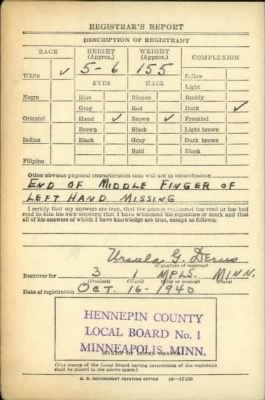 REGISTRAR'S REPORT
DESCRIPTION OF REGISTRANT
RACE HEIGHT (Approx.) WEIGHT (Approx.) COMPLEXION
White ✓ 5-6 155 Sallow
EYES HAIR Light
Negro Blue Blonde Ruddy
Gray Red Dark ✓
Oriental Hazel ✓ Brown ✓ Freckled
Brown Black Light brown
Indian Black Gray Dark brown
Bald Black
Filipino
Other obvious physical characteristics that will aid in identification
END OF MIDDLE FINGER OF
LEFT HAND MISSING
I certify that my answers are true; that the person registered has read or has had
read to him his own answers; that I have witnessed his signature or mark and that
all of his answers of which I have knowledge are true, except as follows:
Ursula G.
(Signature of registrar)
Registrar for 3 1 MPLS. MINN.
(Precinct) (Ward) (State)
Date of registration OCT. 16-1940
HENNEPIN COUNTY
LOCAL BOARD No. 1
MINNEAPOLIS, MINN.
(STAMP OF LOCAL BOARD)
(The stamp of the Local Board having jurisdiction of the registrant
shall be placed in the above space.)
U. S. GOVERNMENT PRINTING OFFICE